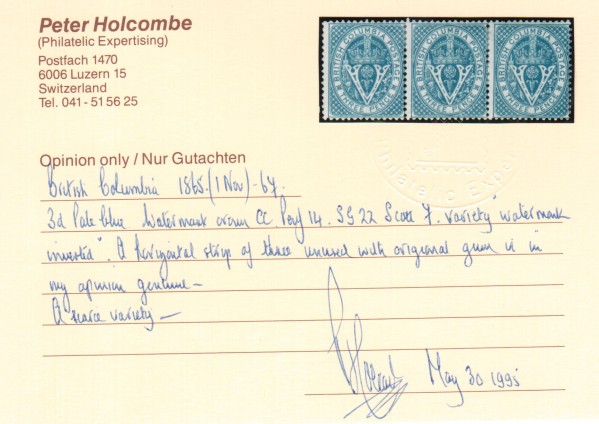 Peter Holcombe
(Philatelic Expertising)
Postfach 1470
6006 Luzern 15
Switzerland
Tel. 041 - 51 56 25
BRITISH COLUMBIA POSTAGE THREE PENCE
BRITISH COLUMBIA POSTAGE THREE PENCE
BRITISH COLUMBIA POSTAGE THREE PENCE
Opinion only / Nur Gutachten
British Columbia 1865.(1 Nov)-67.
3d Pale blue Watermark crown CC. Perf 14. SG 22 Scott 7. Variety "Watermark
inverted". A horizontal strip of three unused with original gum is in
my opinion genuine –
A scarce variety –
May 30 1995